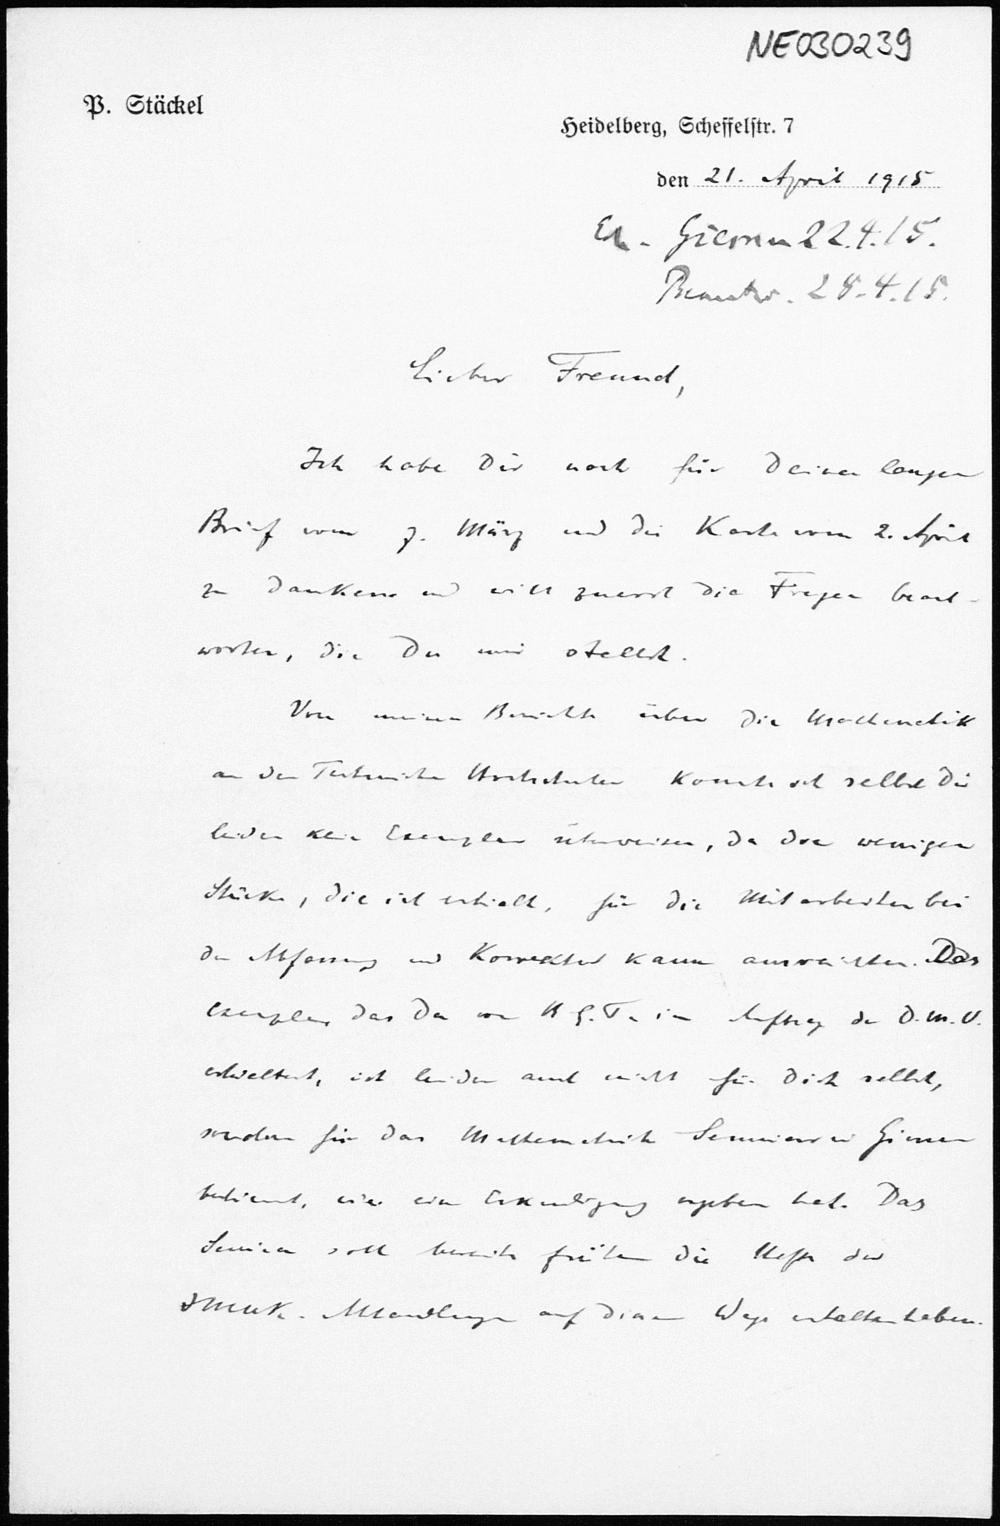 NE030239
P. Stäckel
Heidelberg, Scheffelstr. 7
den 21. April 1915
Erh. Giessen 22.4.15.
Beantw. 28.4.15.
Lieber Freund,
Ich habe Dir noch für Deinen langen
Brief vom 7. März und die Karte vom 2. April
zu danken und will zuerst die Fragen beant-
worten, die Du mir stellst.
Von meinem Berichte über die Mathematik
an den Technischen Hochschulen konnte ich selbst Dir
leider kein Exemplar überweisen, da die wenigen
Stücke, die ich erhielt, für die Mitarbeiter bei
der Abfassung und Korrektur kaum ausreichten. Das
Exemplar das Du von B. G. T. im Auftrag der D.M.V.
erhieltest, ist leider auch nicht für Dich selbst,
sondern für das Mathematische Seminar in Giessen
bestimmt, wie eine Erkundigung ergeben hat. Das
Seminar soll bereits früher die Hefte der
IMUK-Abhandlungen auf diesem Wege erhalten haben.